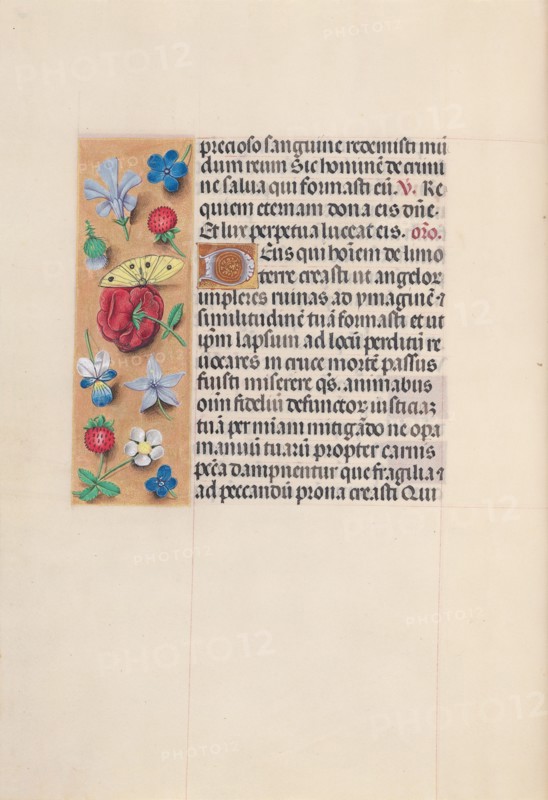 precioso sanguine redemisti mū
dum reum Sic hominē de crimi
ne salua qui formasti eū. V. Re
quiem eternam dona eis dn̄e.
Et lux perpetua luceat eis. oro.
Deus qui hoīem de limo
terre creasti ut angelor
impleres ruinas ad ymaginē ⁊
similitudinē tuā formasti et ut
ip̄m lapsum ad locū perditū re
uocares in cruce mortē passus
fuisti miserere qs̄. animabus
oīm fideliū defunctor iusticiaȝ
tuā per miam mitigādo ne opa
manuū tuarū propter carnis
pcc̄a dampnentur que fragilia ⁊
ad peccandū prona creasti Qui
PHOTO12
PHOTO12
PHOTO12
PHOTO12
PHOTO12
PHOTO12
PHOTO12
PHOTO12